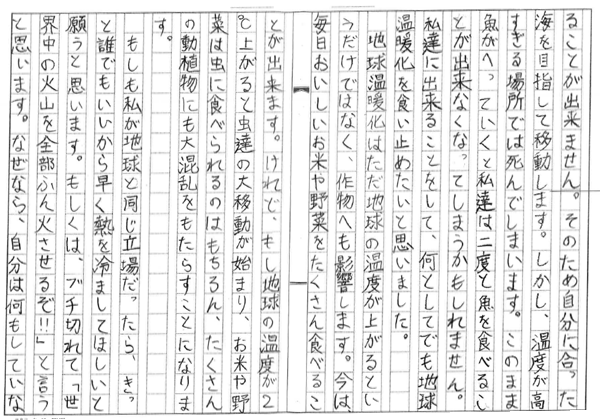 ることが出来ません。そのため自分に合った
海を目指して移動します。しかし、温度が高
すぎる場所では死んでしまいます。このまま
魚がへっていくと私達は二度と魚を食べるこ
とが出来なくなってしまうかもしれません。
私達に出来ることをして、何としてでも地球
温暖化を食い止めたいと思いました。
地球温暖化はただ地球の温度が上がるとい
うだけではなく、作物へも影響します。今は、
毎日おいしいお米や野菜をたくさん食べるこ
とが出来ます。けれど、もし地球の温度が2
℃上がると虫達の大移動が始まり、お米や野
菜は虫に食べられるのはもちろん、たくさん
の動植物にも大混乱をもたらすことになりま
す。
もしも私が地球と同じ立場だったら、きっ
と誰でもいいから早く熱を冷ましてほしいと
願うと思います。もしくは、ブチ切れて「世
界中の火山を全部ふん火させるぞ!!」と言う
と思います。なぜなら、自分は何もしていな